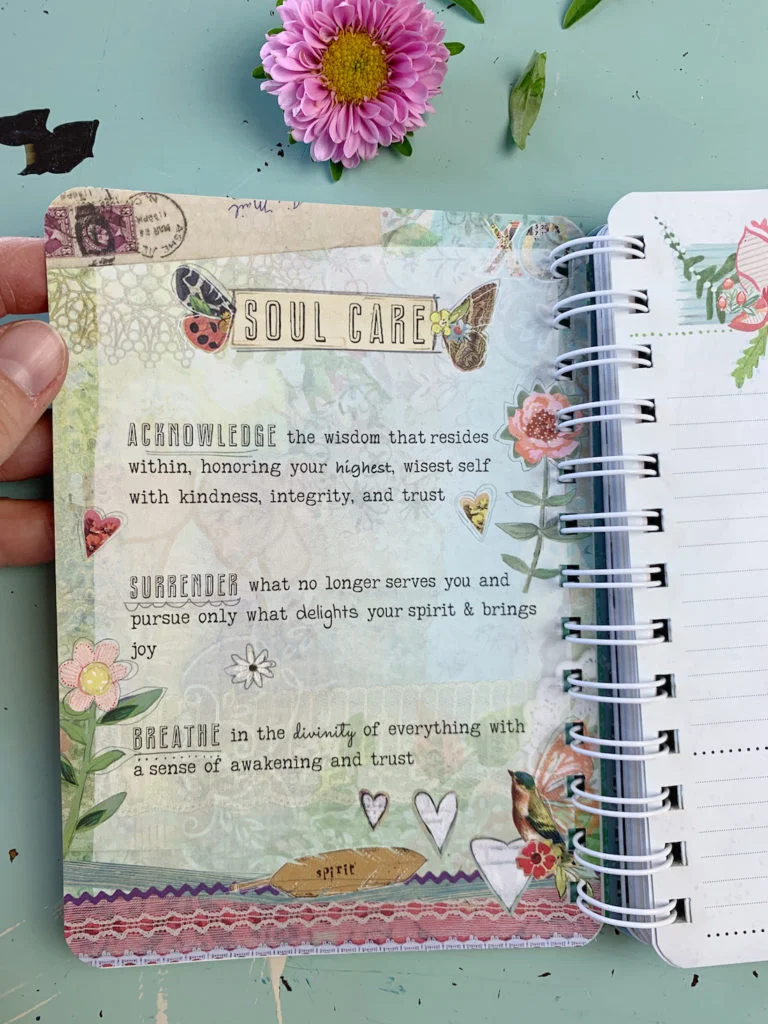 Mail
SOUL CARE
ACKNOWLEDGE the wisdom that resides
within, honoring your highest, wisest self
with kindness, integrity, and trust
SURRENDER what no longer serves you and
pursue only what delights your spirit & brings
joy
BREATHE in the divinity of everything with
a sense of awakening and trust
spirit